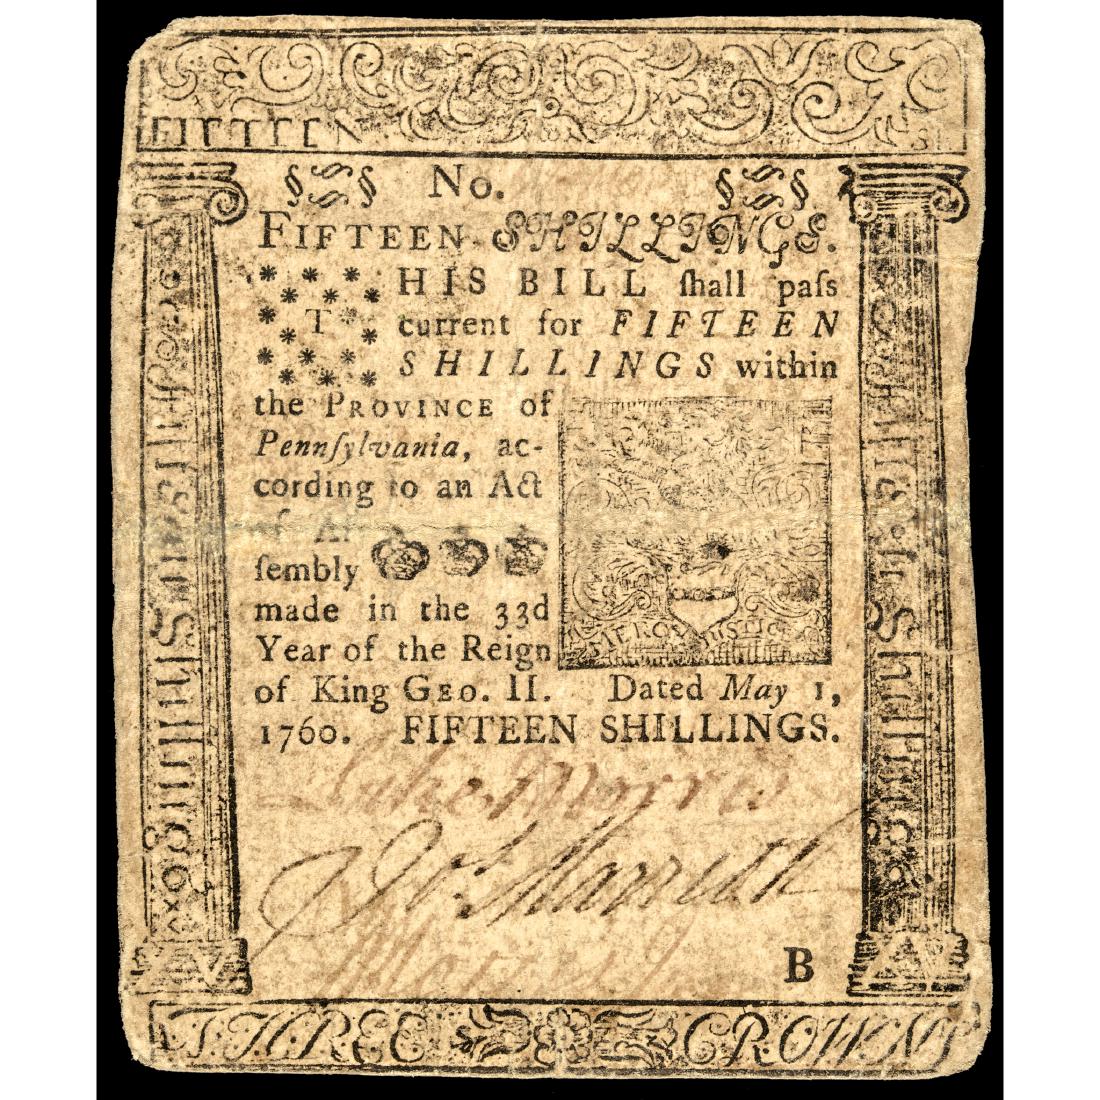 FIFTEEN SI
§ § No. § §
FIFTEEN SHILLINGS.
THIS BILL ſhall paſs
current for FIFTEEN
SHILLINGS within
the PROVINCE of
Pennſylvania, ac-
cording to an Act
of Aſ-
ſembly
made in the 33d
Year of the Reign
of King GEO. II. Dated May 1,
1760. FIFTEEN SHILLINGS.
MERCY JUSTICE
Luke Morris
Jos. Marriott
B
THREE CROWNS